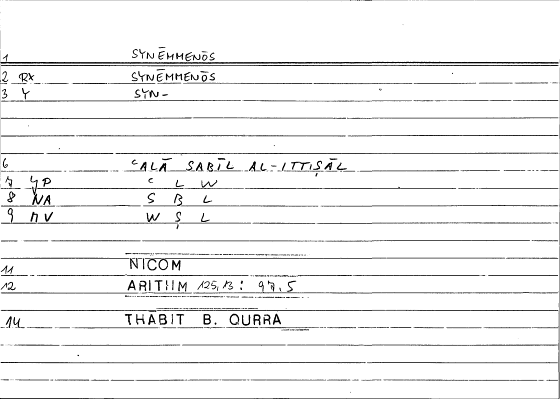 1 SYNĒMMENŌS
2 RX SYNĒMMENŌS
3 Y SYN-
6 ʿALĀ SABĪL AL-ITTIṢĀL
7 YP ʿ L W
8 NA S B L
9 MV W Ṣ L
11 NICOM
12 ARITIIM 125,13 : 97.5
14 THĀBIT B. QURRA